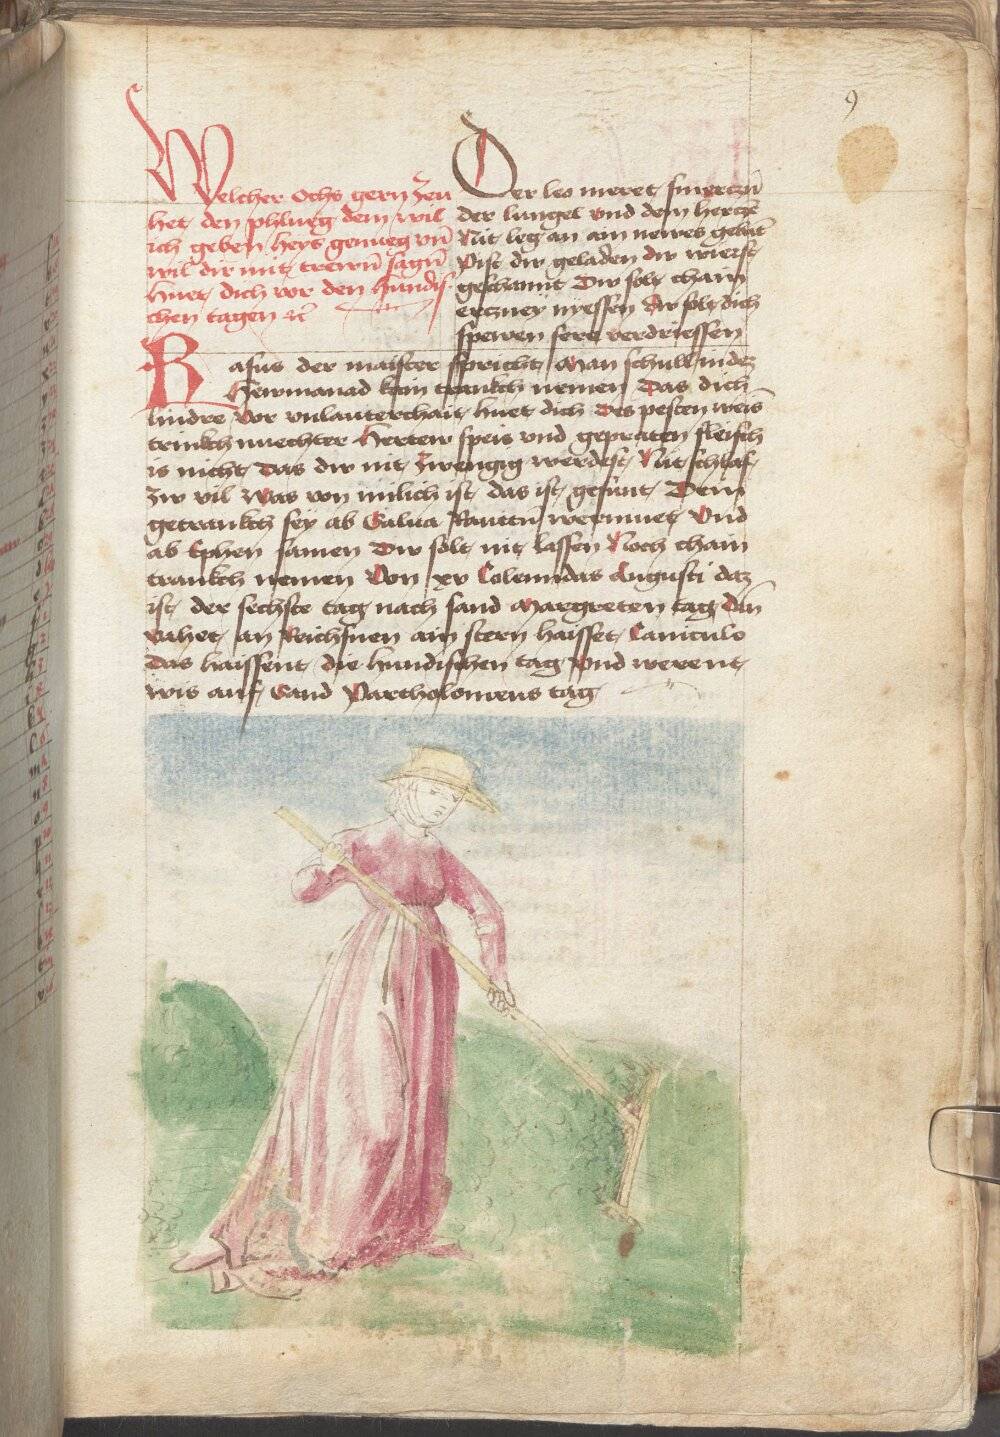 9
Welcher Ochs gern zeu
het den phlueg dem wil
ich geben heys genueg vn̄
wil dir mit trewn̄ sagn̄
huet dich vor den hundis
chen tagen ⁊c̄
Der leo meret smerczn̄
der lungel vnd dem hercz
Nit leg an ain newes gebāt
Pist dw geladen dw wierst
geschannt Dw solt chain
erczney nyessen dw solt dich
spewen sere verdriessen
Rasus der maister spricht man schull in dez
Hewmanad kain trankch nemen Das dich
lindre vor vnlauterchait huet dich des pesten weis
trinkch nuechter Herten speis vnd gepraten fleisch
is nicht das dw nit zwengig werdest Nit schlaf
zw vil Was von milich ist das ist gesunt Dein
getrankch sey ab Salua Rautn̄ wermuet Vnd
ab Ephen samen Dw solt nit lassen Noch chain
trankch nemen Von xv Colenndas Augusti daz
ist der sechste tag nach sand Margreten tag Dan̄
vahet an Reichsnen ain stern haisset Caniculo
Das haissent die hundischen tag Vnd werent
wis auf Sand Partholomeus tag